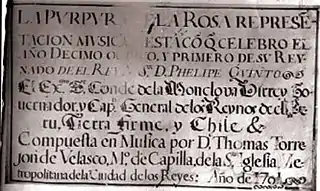 LA PVRPVR LA ROSA REPRESE-
TACION MVSICA
AÑO DECIMO Y PRIMERO DE SV REY-
NADO DEL REY N. S.r D. PHELIPE QVINTO
El Ex.mo Conde de la Monclova Virrey Go-
vernador, y Cap.n General de los Reynos de el Pe-
ru, Tierra firme, y Chile &
Compuesta en Musica por D. Thomas Torre
jon de Velasco, M.o de Capilla, de la S.ta Iglesia Me-
tropolitana de la Ciudad de los Reyes: Año de 1701